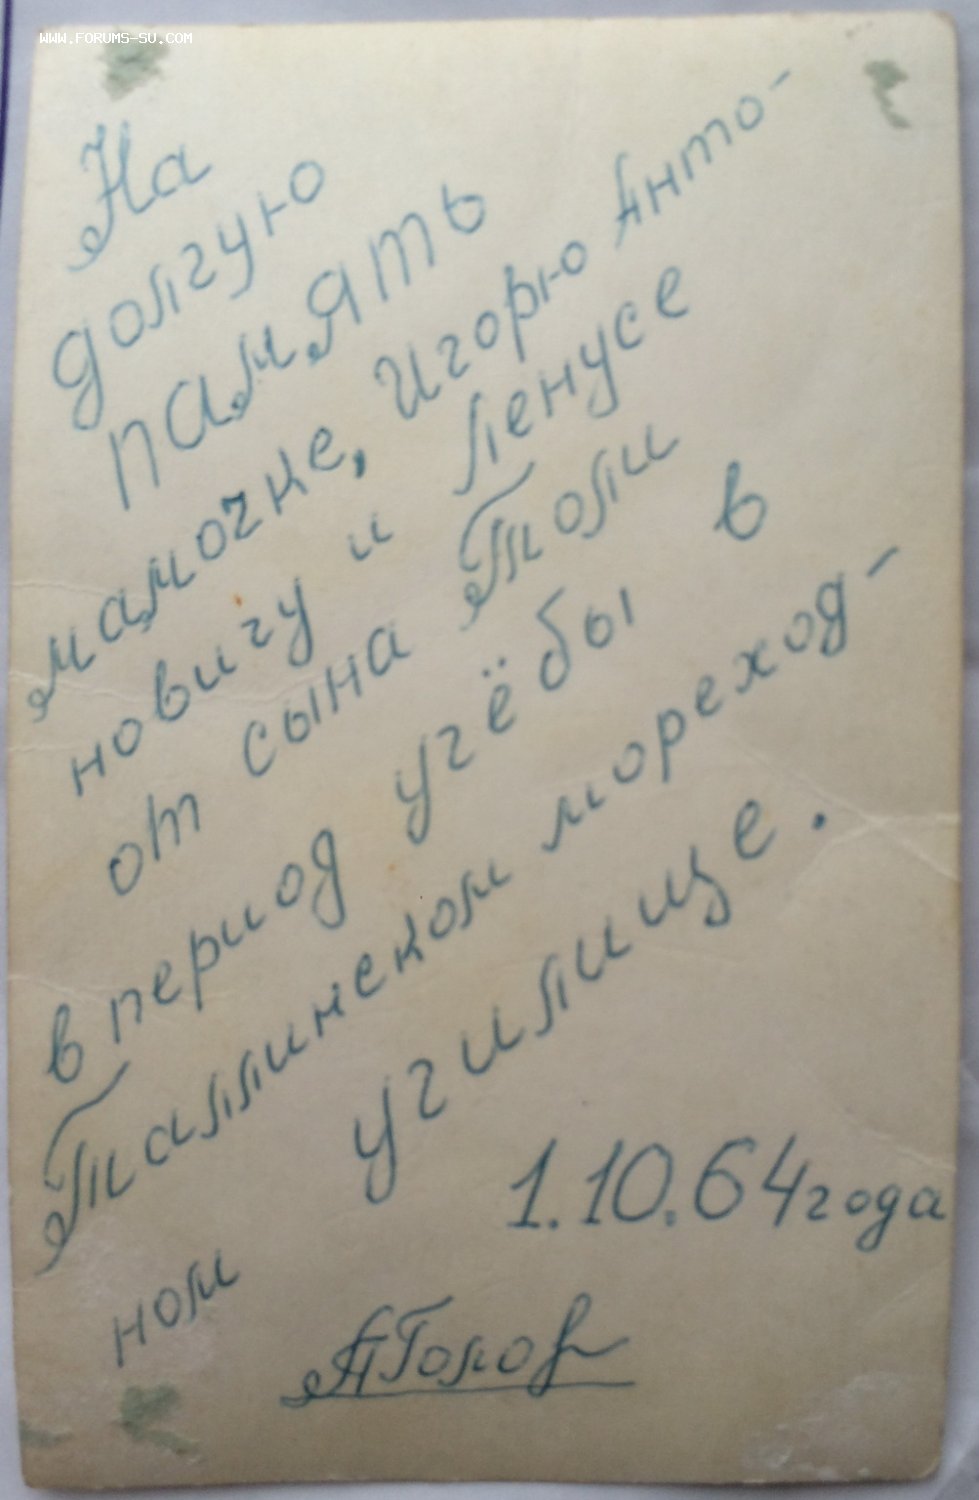 WWW.FORUMS-SU.COM
На
долгую
память
мамочке, Игорю Анто-
новичу и Ленусе
от сына Толи
в период учёбы в
Таллинском мореход-
ном училище.
1.10.64 года